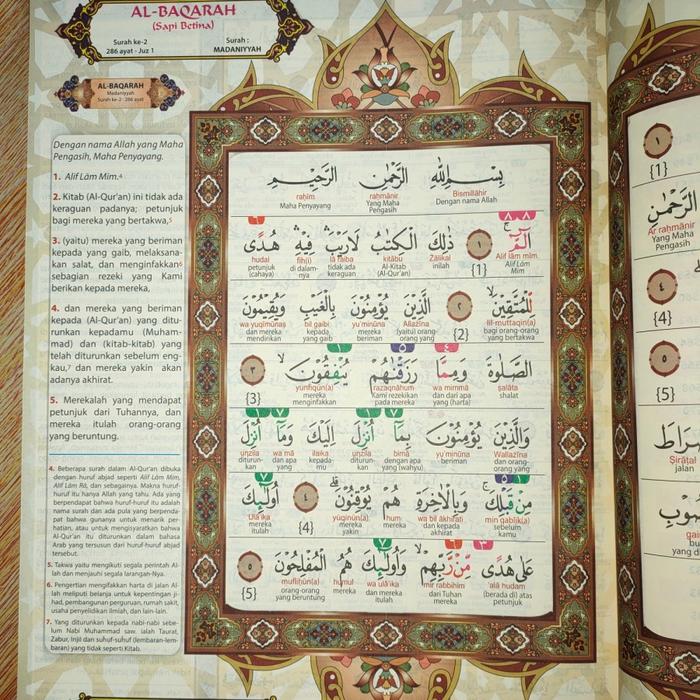 AL-BAQARAH
(Sapi Betina)
Surah ke-2
286 ayat - Juz 1
Surah :
MADANIYYAH
AL-BAQARAH
Madaniyyah
Surah ke-2 · 286 ayat
Dengan nama Allah yang Maha
Pengasih, Maha Penyayang.
1. Alif Lām Mīm.4
2. Kitab (Al-Qur'an) ini tidak ada
keraguan padanya; petunjuk
bagi mereka yang bertakwa,5
3. (yaitu) mereka yang beriman
kepada yang gaib, melaksana-
kan salat, dan menginfakkan6
sebagian rezeki yang Kami
berikan kepada mereka,
4. dan mereka yang beriman
kepada (Al-Qur'an) yang ditu-
runkan kepadamu (Muham-
mad) dan (kitab-kitab) yang
telah diturunkan sebelum eng-
kau,7 dan mereka yakin akan
adanya akhirat.
5. Merekalah yang mendapat
petunjuk dari Tuhannya, dan
mereka itulah orang-orang
yang beruntung.
4. Beberapa surah dalam Al-Qur'an dibuka
dengan huruf abjad seperti Alif Lām Mīm,
Alif Lām Rā, dan sebagainya. Makna huruf-
huruf itu hanya Allah yang tahu. Ada yang
berpendapat bahwa huruf-huruf itu adalah
nama surah dan ada pula yang berpenda-
pat bahwa gunanya untuk menarik per-
hatian, atau untuk mengisyaratkan bahwa
Al-Qur'an itu diturunkan dalam bahasa
Arab yang tersusun dari huruf-huruf abjad
tersebut.
5. Takwa yaitu mengikuti segala perintah Al-
lah dan menjauhi segala larangan-Nya.
6. Pengertian menginfakkan harta di jalan Al-
lah meliputi belanja untuk kepentingan ji-
had, pembangunan perguruan, rumah sakit,
usaha penyelidikan ilmiah, dan lain-lain.
7. Yang diturunkan kepada nabi-nabi sebe-
lum Nabi Muhammad saw. ialah Taurat,
Zabur, Injil dan suhuf-suhuf (lembaran-lem-
baran) yang tidak seperti Kitab.
بِسْمِ اللّٰهِ الرَّحْمٰنِ الرَّحِيْمِ
Bismillāhir raḥmānir raḥīm
Dengan nama Allah Yang Maha Pengasih Maha Penyayang
٨ - ٨ ١
الۤمّۤ ۚ ١ ذٰلِكَ الْكِتٰبُ لَا رَيْبَ ۛ فِيْهِ ۛ هُدًى
Alif lām mīm. {1} Żālikal kitābu lā raiba fīh(i) hudal
Alif Lām Mīm inilah Al-Kitab (Al-Qur'an) tidak ada keraguan di dalam-nya petunjuk (cahaya)
لِّلْمُتَّقِيْنَۙ ٢ الَّذِيْنَ يُؤْمِنُوْنَ بِالْغَيْبِ وَيُقِيْمُوْنَ
lil-muttaqīn(a) {2} Allażīna yu'minūna bil gaibi wa yuqīmūnaṣ
bagi orang-orang yang bertakwa (yaitu) orang-orang yang mereka beriman kepada yang gaib dan mereka mendirikan
٤ ٥ ١
الصَّلٰوةَ وَمِمَّا رَزَقْنٰهُمْ يُنْفِقُوْنَۙ ٣
ṣalāta wa mimmā razaqnāhum yunfiqūn(a) {3}
shalat dan dari apa yang (harta) Kami rezekikan pada mereka mereka menginfakkan
٧ ١ ٧ ١
وَالَّذِيْنَ يُؤْمِنُوْنَ بِمَآ اُنْزِلَ اِلَيْكَ وَمَآ اُنْزِلَ
Wallażīna yu'minūna bimā unzila ilaika wa mā unzila
dan orang-orang yang beriman dengan apa yang (wahyu) diturun-kan kepada-mu dan apa yang diturun-kan
١ ٥ ٧
مِنْ قَبْلِكَ ۚ وَبِالْاٰخِرَةِ هُمْ يُوْقِنُوْنَۗ ٤ اُولٰۤىِٕكَ
min qablik(a) wa bil ākhirati hum yūqinūn(a) {4} Ulā'ika
sebelum kamu dan kepada akhirat mereka yakin mereka itulah
٣ ٦ ٧
عَلٰى هُدًى مِّنْ رَّبِّهِمْ ۙ وَاُولٰۤىِٕكَ هُمُ الْمُفْلِحُوْنَ ٥
'alā hudam mir rabbihim wa ulā'ika humul mufliḥūn(a) {5}
(berada di) atas petunjuk dari Tuhan mereka dan mereka itulah mereka orang-orang yang beruntung
١
{1}
الرَّحْمٰنِ
Ar raḥmānir
Yang Maha
Pengasih
٤
{4}
٥
{5}
صِرَاطَ
Ṣirāṭal
jalan